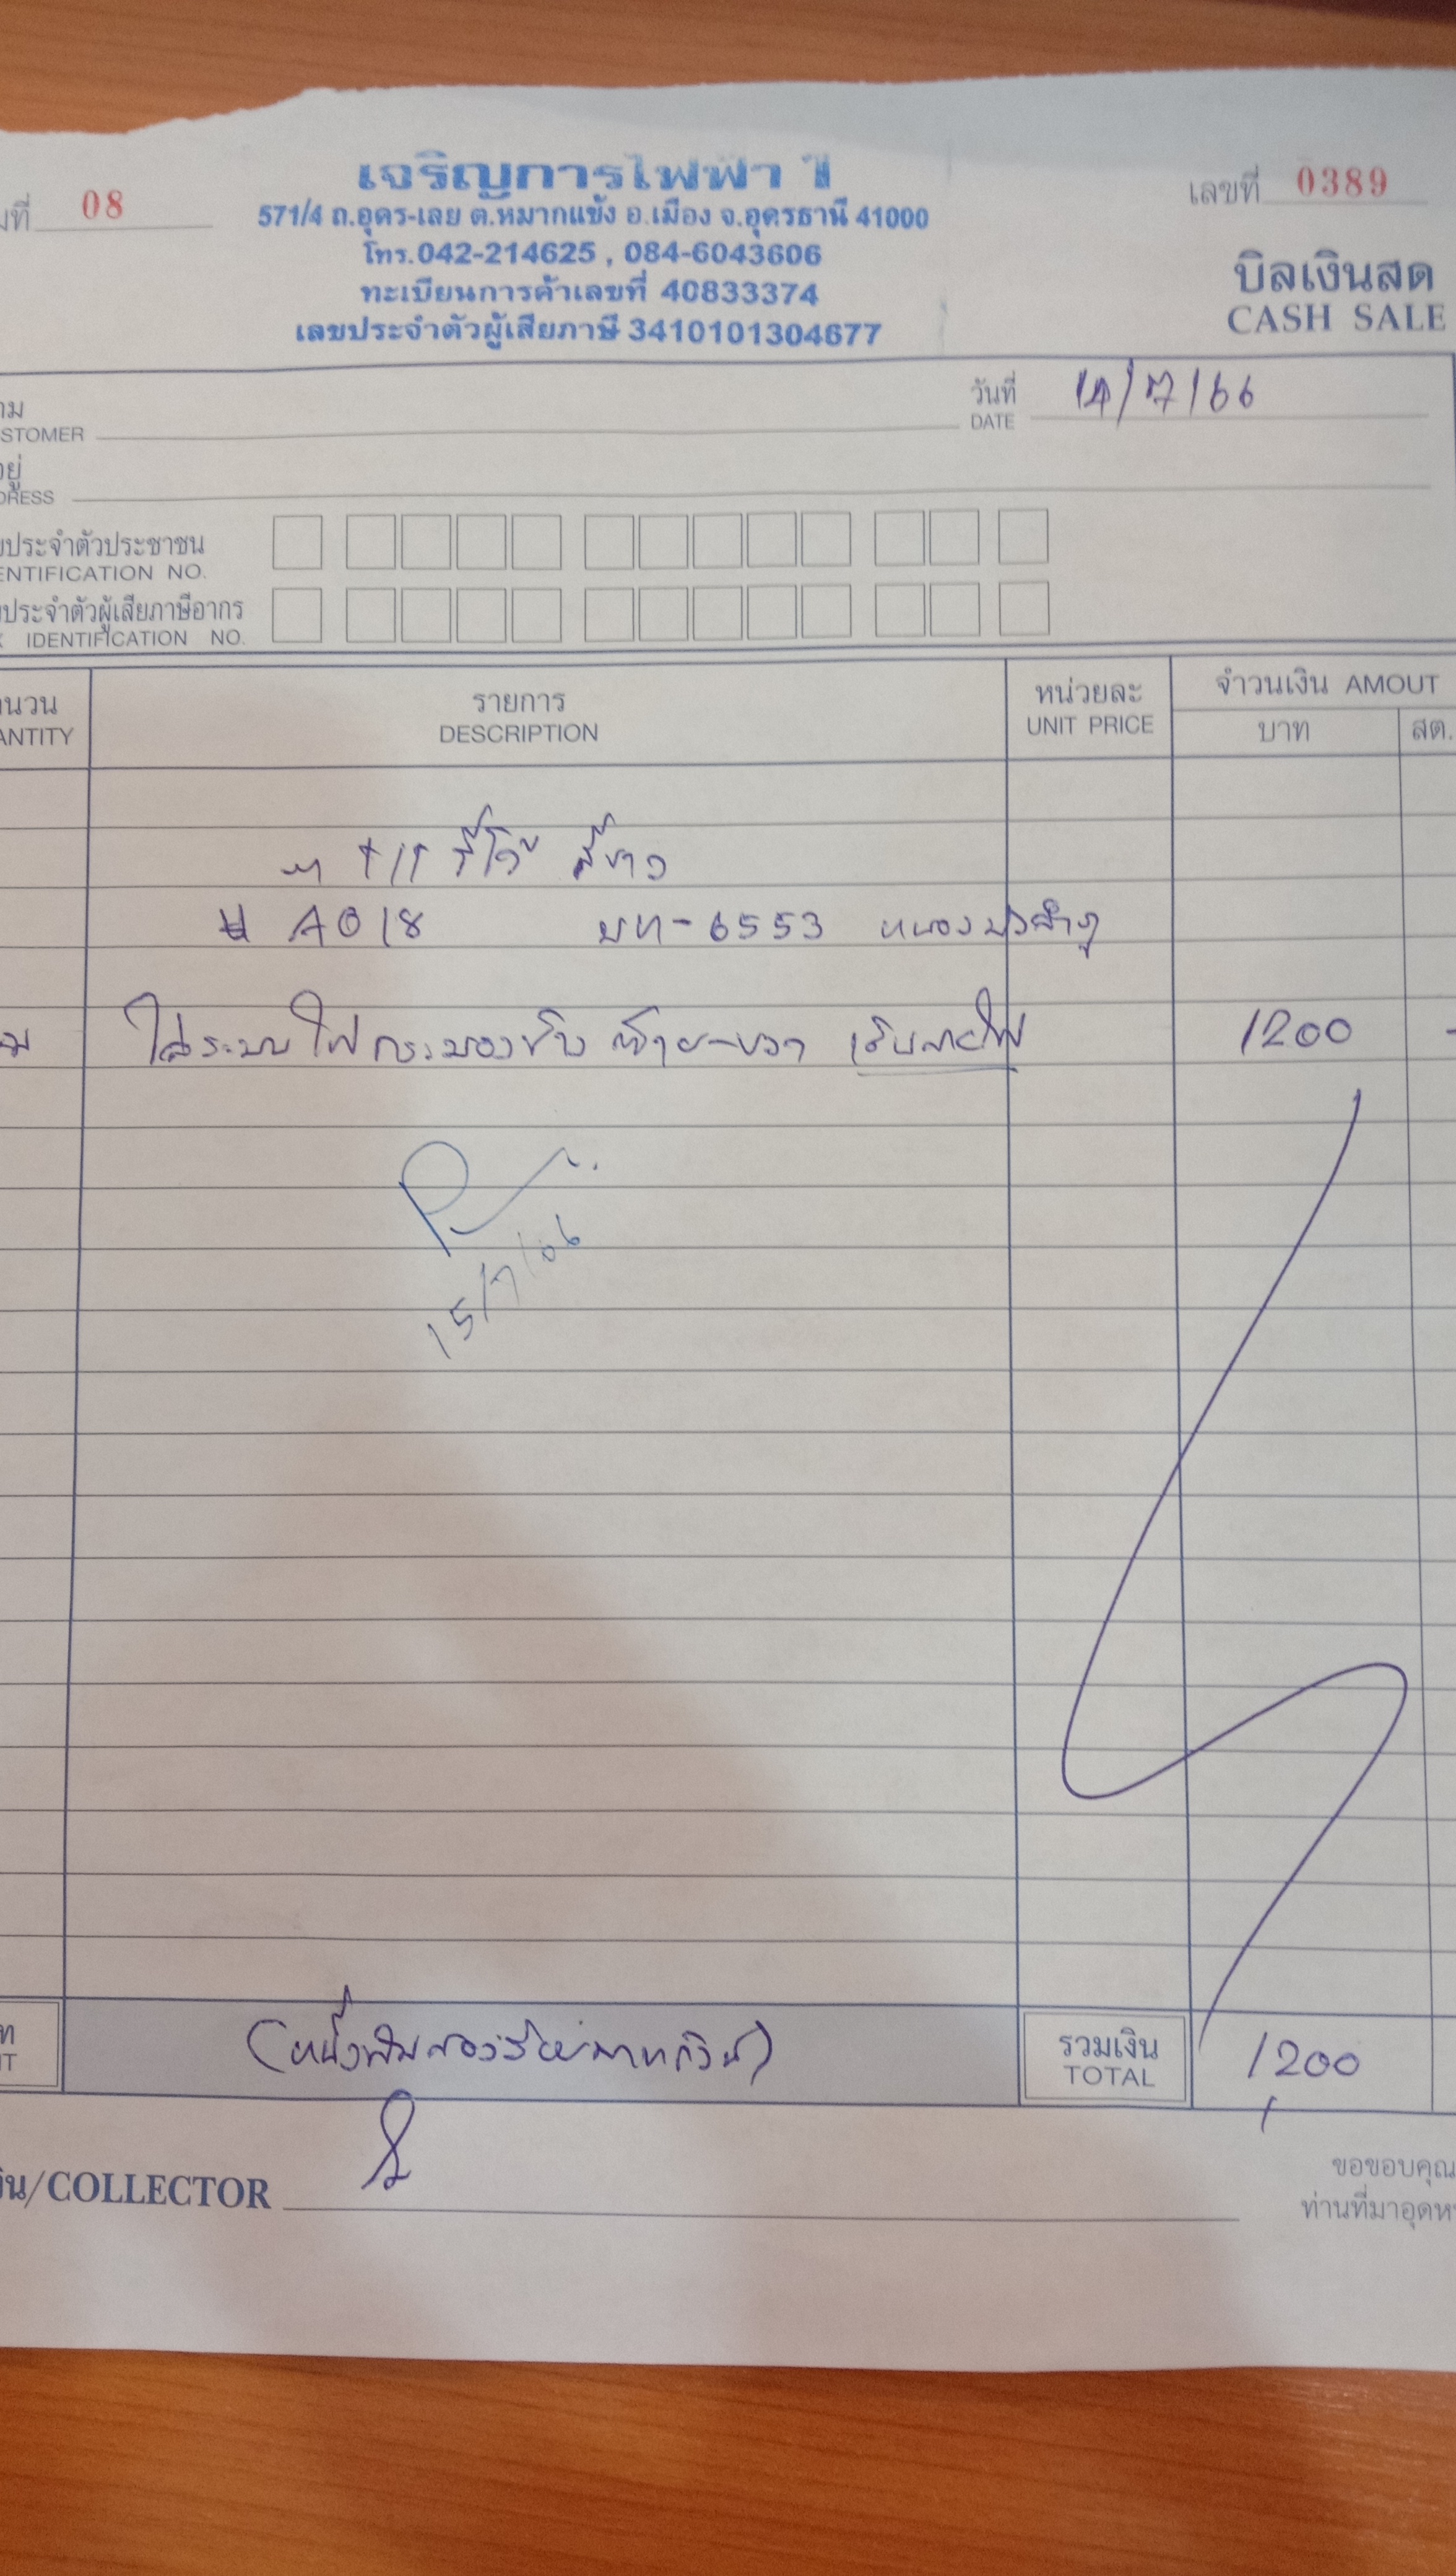 เจริญการไฟฟ้า 1
มที่ 08 เลขที่ 0389
571/4 ถ.อุดร-เลย ต.หมากแข้ง อ.เมือง จ.อุดรธานี 41000
โทร.042-214625 , 084-6043606
ทะเบียนการค้าเลขที่ 40833374
เลขประจำตัวผู้เสียภาษี 3410101304677
บิลเงินสด
CASH SALE
าม วันที่ 14/7/66
STOMER DATE
อยู่
DRESS
ประจำตัวประชาชน
ENTIFICATION NO.
ประจำตัวผู้เสียภาษีอากร
X IDENTIFICATION NO.
านวน รายการ หน่วยละ จำวนเงิน AMOUT
ANTITY DESCRIPTION UNIT PRICE บาท สต.
รีโว้ สีขาว
# A018 บท-6553 หนองบัวลำภู
ใส่ระบบไฟกระมองข้าง ซ้าย-ขวา เดินสายไฟ 1200 -
15/7/66
(หนึ่งพันสองร้อยบาทถ้วน) รวมเงิน 1200
TOTAL
งิน/COLLECTOR
ขอขอบคุณ
ท่านที่มาอุดห